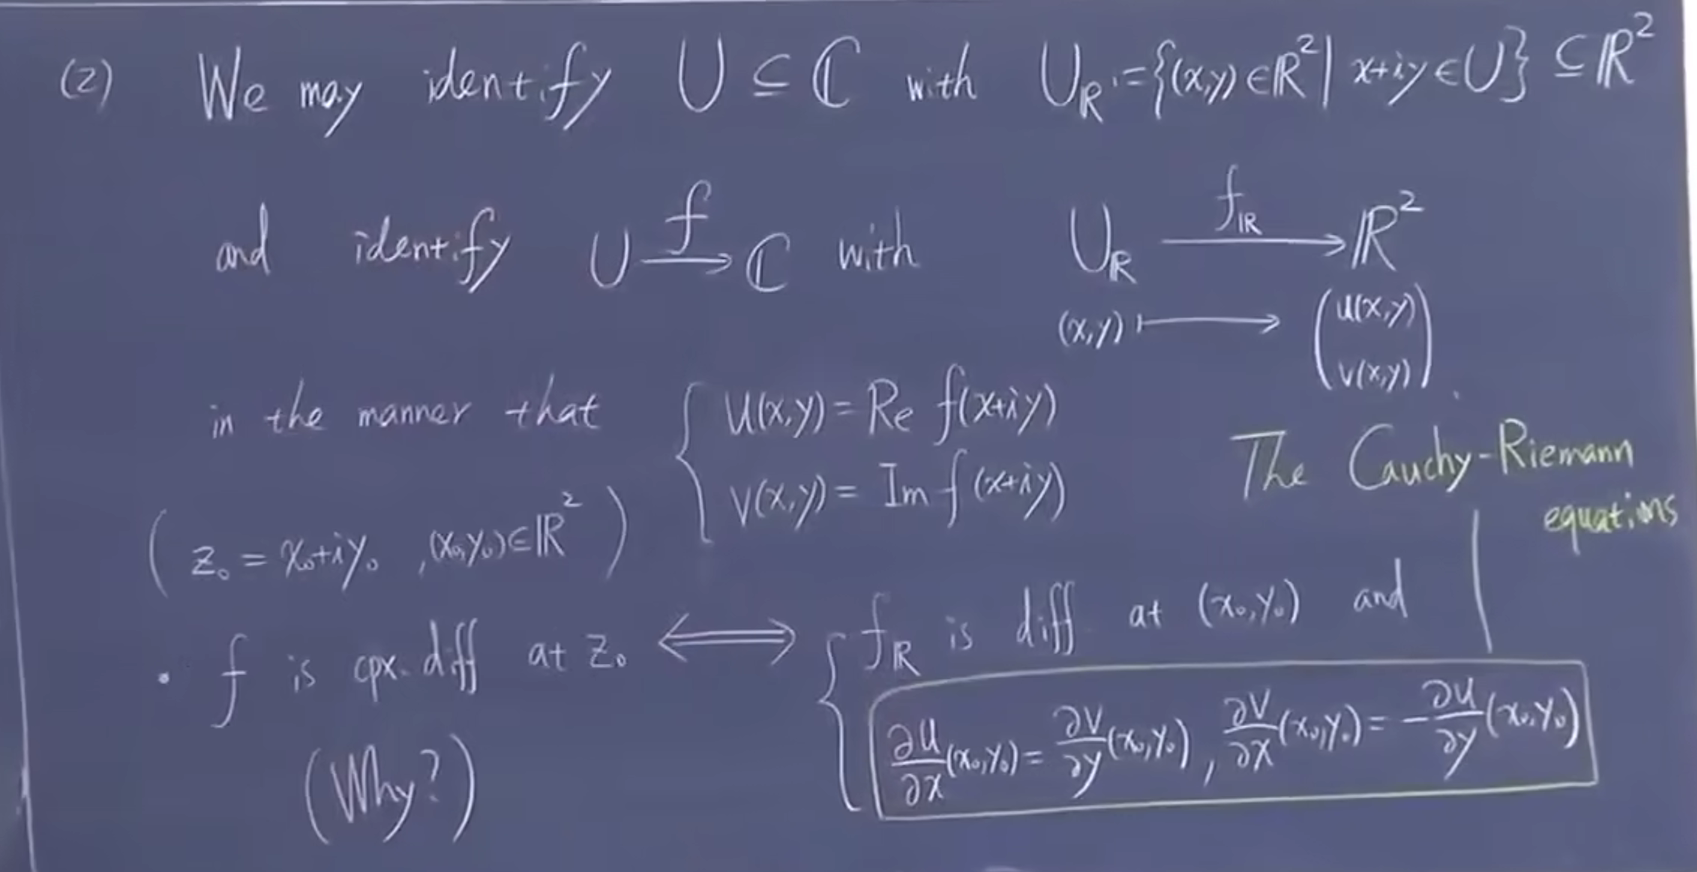 (2) We may identify U ⊆ ℂ with U_ℝ := {(x,y) ∈ ℝ² | x+iy ∈ U} ⊆ ℝ²
and identify U \xrightarrow{f} ℂ with U_ℝ \xrightarrow{f_ℝ} ℝ²
(x,y) ⟼ \begin{pmatrix} u(x,y) \\ v(x,y) \end{pmatrix}.
in the manner that { u(x,y) = Re f(x+iy)
v(x,y) = Im f(x+iy)
The Cauchy-Riemann
equations
( z₀ = x₀+iy₀ , (x₀,y₀) ∈ ℝ² )
· f is cpx. diff at z₀ ⟺ { f_ℝ is diff at (x₀,y₀) and
∂u/∂x (x₀,y₀) = ∂v/∂y (x₀,y₀) , ∂v/∂x (x₀,y₀) = -∂u/∂y (x₀,y₀)
(Why?)